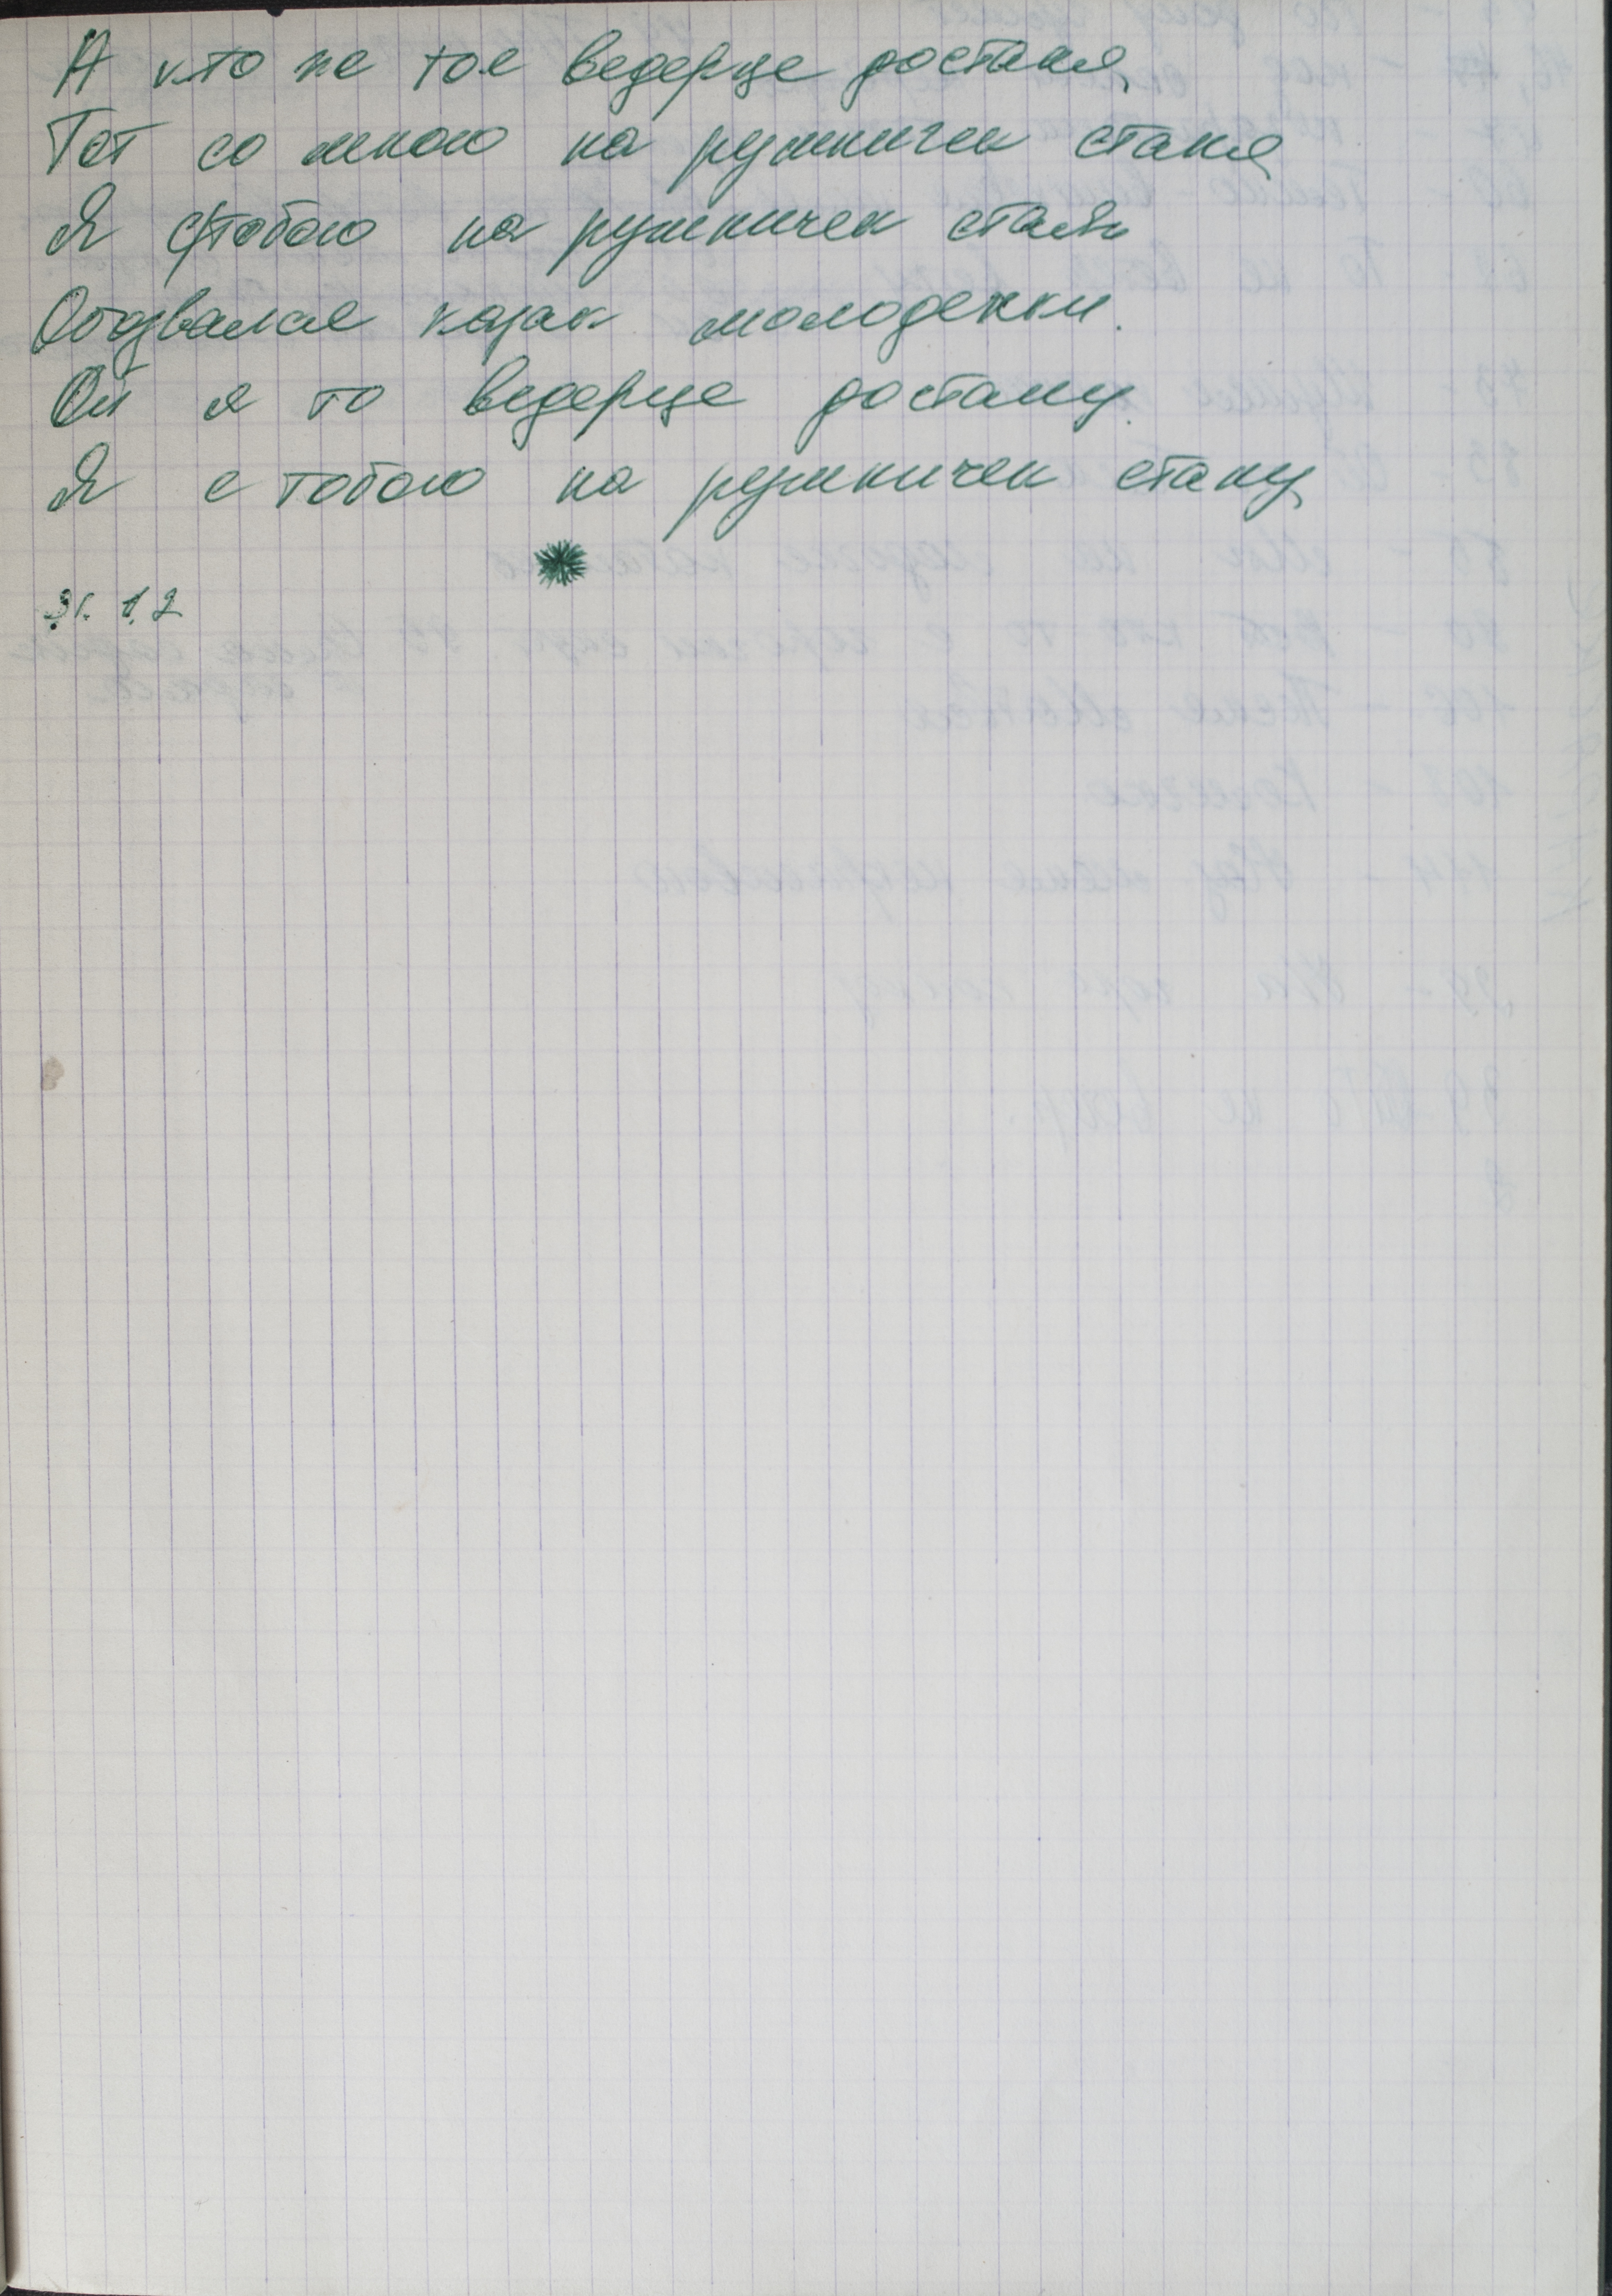 А кто же тое ведерце достаня,
Тот со мною на рушничек станя,
Я с тобою на рушничек стань
Отозвался казак молоденьки.
Ой я то ведерце достану.
Я с тобою на рушничек стану
Эг. 1, 2